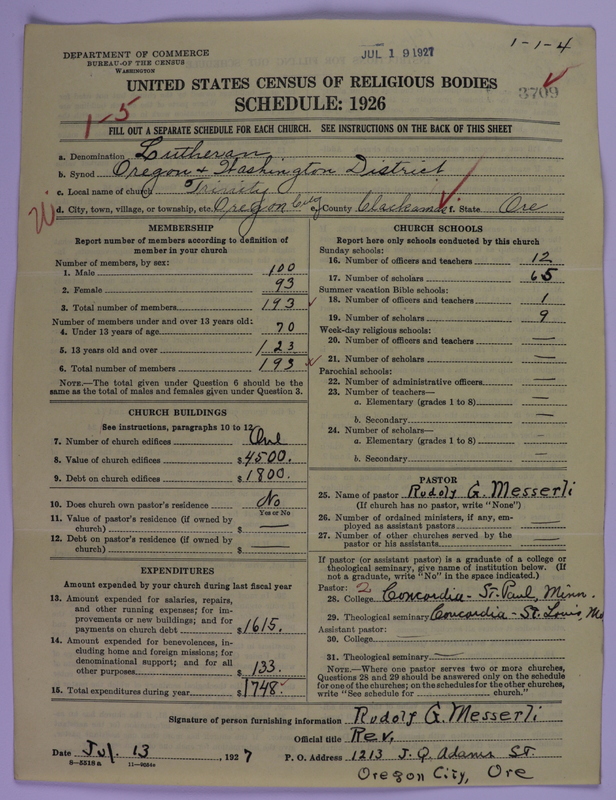 JUL 19 1927
1-1-4
DEPARTMENT OF COMMERCE
BUREAU OF THE CENSUS
WASHINGTON
UNITED STATES CENSUS OF RELIGIOUS BODIES
3709
SCHEDULE: 1926
1-5
FILL OUT A SEPARATE SCHEDULE FOR EACH CHURCH. SEE INSTRUCTIONS ON THE BACK OF THIS SHEET
a. Denomination Lutheran
b. Synod Oregon & Washington District
c. Local name of church Trinity
d. City, town, village, or township, etc. Oregon City e. County Clackamas f. State Ore
MEMBERSHIP
Report number of members according to definition of
member in your church
Number of members, by sex:
1. Male 100
2. Female 93
3. Total number of members 193
Number of members under and over 13 years old:
4. Under 13 years of age 70
5. 13 years old and over 123
6. Total number of members 193
NOTE.—The total given under Question 6 should be the
same as the total of males and females given under Question 3.
CHURCH BUILDINGS
See instructions, paragraphs 10 to 12
7. Number of church edifices One
8. Value of church edifices $4500.
9. Debt on church edifices $1800.
10. Does church own pastor's residence No
Yes or No
11. Value of pastor's residence (if owned by
church) $ —
12. Debt on pastor's residence (if owned by
church) $ —
EXPENDITURES
Amount expended by your church during last fiscal year
13. Amount expended for salaries, repairs,
and other running expenses; for im-
provements or new buildings; and for
payments on church debt $1615.
14. Amount expended for benevolences, in-
cluding home and foreign missions; for
denominational support; and for all
other purposes $133.
15. Total expenditures during year $1748.
CHURCH SCHOOLS
Report here only schools conducted by this church
Sunday schools:
16. Number of officers and teachers 12
17. Number of scholars 65
Summer vacation Bible schools:
18. Number of officers and teachers 1
19. Number of scholars 9
Week-day religious schools:
20. Number of officers and teachers —
21. Number of scholars —
Parochial schools:
22. Number of administrative officers —
23. Number of teachers—
a. Elementary (grades 1 to 8) —
b. Secondary —
24. Number of scholars—
a. Elementary (grades 1 to 8) —
b. Secondary —
PASTOR
25. Name of pastor Rudolf G. Messerli
(If church has no pastor, write "None")
26. Number of ordained ministers, if any, em-
ployed as assistant pastors —
27. Number of other churches served by the
pastor or his assistants —
If pastor (or assistant pastor) is a graduate of a college or
theological seminary, give name of institution below. (If
not a graduate, write "No" in the space indicated.)
Pastor: 2
28. College Concordia - St. Paul, Minn.
29. Theological seminary Concordia - St. Louis, Mo
Assistant pastor:
30. College —
31. Theological seminary —
NOTE.—Where one pastor serves two or more churches,
Questions 28 and 29 should be answered only on the schedule
for one of the churches; on the schedules for the other churches,
write "See schedule for church."
Signature of person furnishing information Rudolf G. Messerli
Official title Rev.
Date Jul. 13, 1927 P. O. Address 1213 J. Q. Adams St.
8—5518a 11—9084
Oregon City, Ore